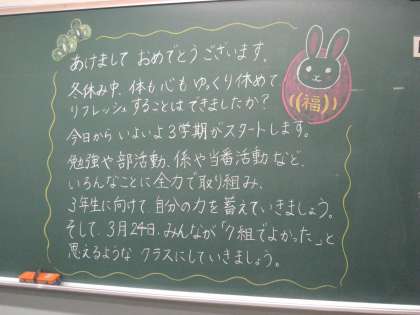 あけまして おめでとうございます。
冬休み中、体も心も ゆっくり休めて
リフレッシュ することは できましたか？
今日から いよいよ 3学期が スタートします。
勉強や部活動、係や当番活動 など、
いろんなことに 全力で 取り組み、
3年生に向けて、自分の力を 蓄えていきましょう。
そして、3月24日、みんなが「7組でよかった」と
思えるような クラスにしていきましょう。
福